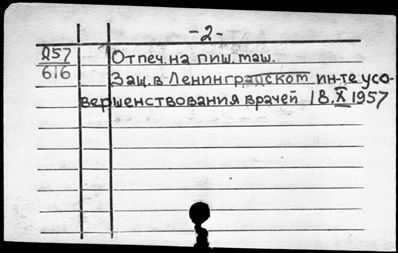 -2-
Д57 Отпеч. на пиш. маш.
616 Защ. в Ленинградском ин-те усо-
вершенствования врачей 18.X 1957